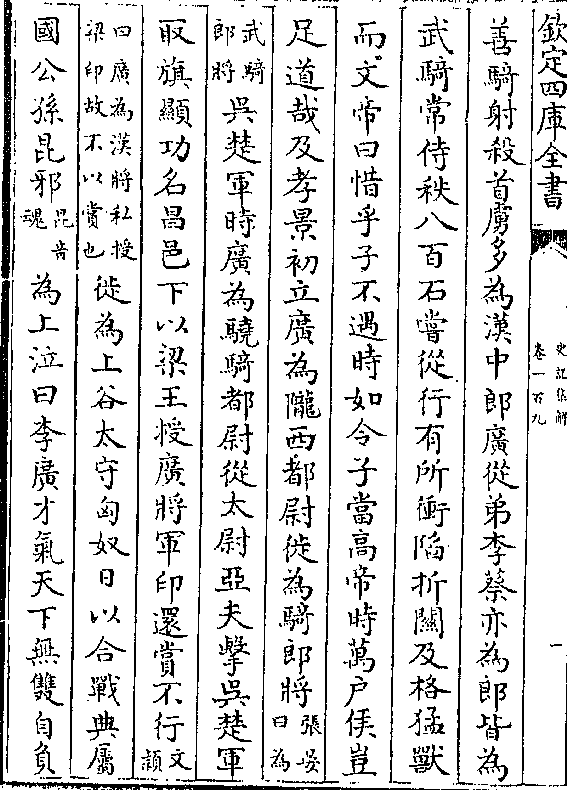 欽定四庫全書
史記集解
卷一百九
一
善騎射殺首虜多為漢中郎廣從弟李蔡亦為郎皆為
武騎常侍秩八百石嘗從行有所衝陷折關及格猛獸
而文帝曰惜乎子不遇時如令子當高帝時萬户侯豈
足道哉及孝景初立廣為隴西都尉徙為騎郎將張晏曰為
武騎郎將吳楚軍時廣為驍騎都尉從太尉亞夫擊吳楚軍
取旗顯功名昌邑下以梁王授廣將軍印還賞不行文頴
曰廣為漢將私授梁印故不以賞也徙為上谷太守匈奴日以合戰典屬
國公孫昆邪昆音魂為上泣曰李廣才氣天下無雙自負